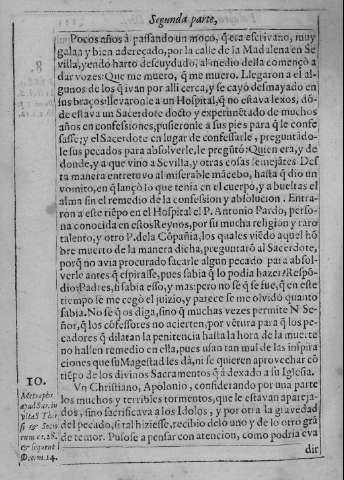 Segunda parte,
Pocos años à passando un moço, q̃ era escrivano, muy
galan y bien adereçado, por la calle de la Madalena en Se
villa, yendo harto descuydado, al medio della començò a
dar vozes: Que me muero, q̃ me muero. Llegaron a el al-
gunos de los q̃ ivan por alli cerca, y se cayò desmayado en
sus braços: llevaronle a un Hospital, q̃ no estava lexos, dõ-
de estava un Sacerdote docto y experimẽtado de muchos
años en confessiones, pusieronle a sus pies para q̃ le confe
sasse: y el Sacerdote en lugar de confessarle, preguntãdo-
le sus pecados para absolverle, le pregũtò: Quien era, y de
donde, y a que vino a Sevilla, y otras cosas semejãtes Des
ta manera entretuvo al miserable mãcebo, hasta q̃ dio un
vomito, en q̃ lançò lo que tenia en el cuerpo, y a bueltas el
alma sin el remedio de la confession y absolucion. Entra-
ron a este tiẽpo en el Hospital el P. Antonio Pardo, perso-
na conocida en estos Reynos, por su mucha religion y raro
talento, y otro P. dela Cõpañia, los quales viẽdo aquel hõ
bre muerto de la manera dicha, preguntarõ al Sacerdote,
porq̃ no avia procurado sacarle algun pecado para absol-
verle antes q̃ espirasse, pues sabia q̃ lo podia hazer? Respõ-
dio: Padres, si sabia esso, y mas: pero no sè q̃ se fue, q̃ en este
tiempo se me cegò el juizio, y parece se me olvidò quanto
sabia. No sè q̃ os diga, sino q̃ muchas vezes permite N. Se-
ñor, q̃ los cõfessores no acierten, por vẽtura para q̃ los pe-
cadores q̃ dilatan la penitencia hasta la hora de la muerte
no hallen remedio en ella, pues usan tan mal de las inspira
ciones que su Magestad les dà, ni se quieren aprovechar cõ
tiẽpo de los divinos Sacramentos q̃ à dexado a su Iglesia.
10.
Metaphr.
apud Sur. in
vita S. Thir
si & Socio
rum ca. 28.
& sequent.
Decem. 14.
Un Christiano, Apolonio, considerando por una parte
los muchos y terribles tormentos, que le estavan apareja-
dos, sino sacrificava a los Idolos, y por otra la gravedad
del pecado, si tal hiziesse, recibio delo uno y de lo otro grã
de temor. Pusose a pensar con atencion, como podria eva
dir